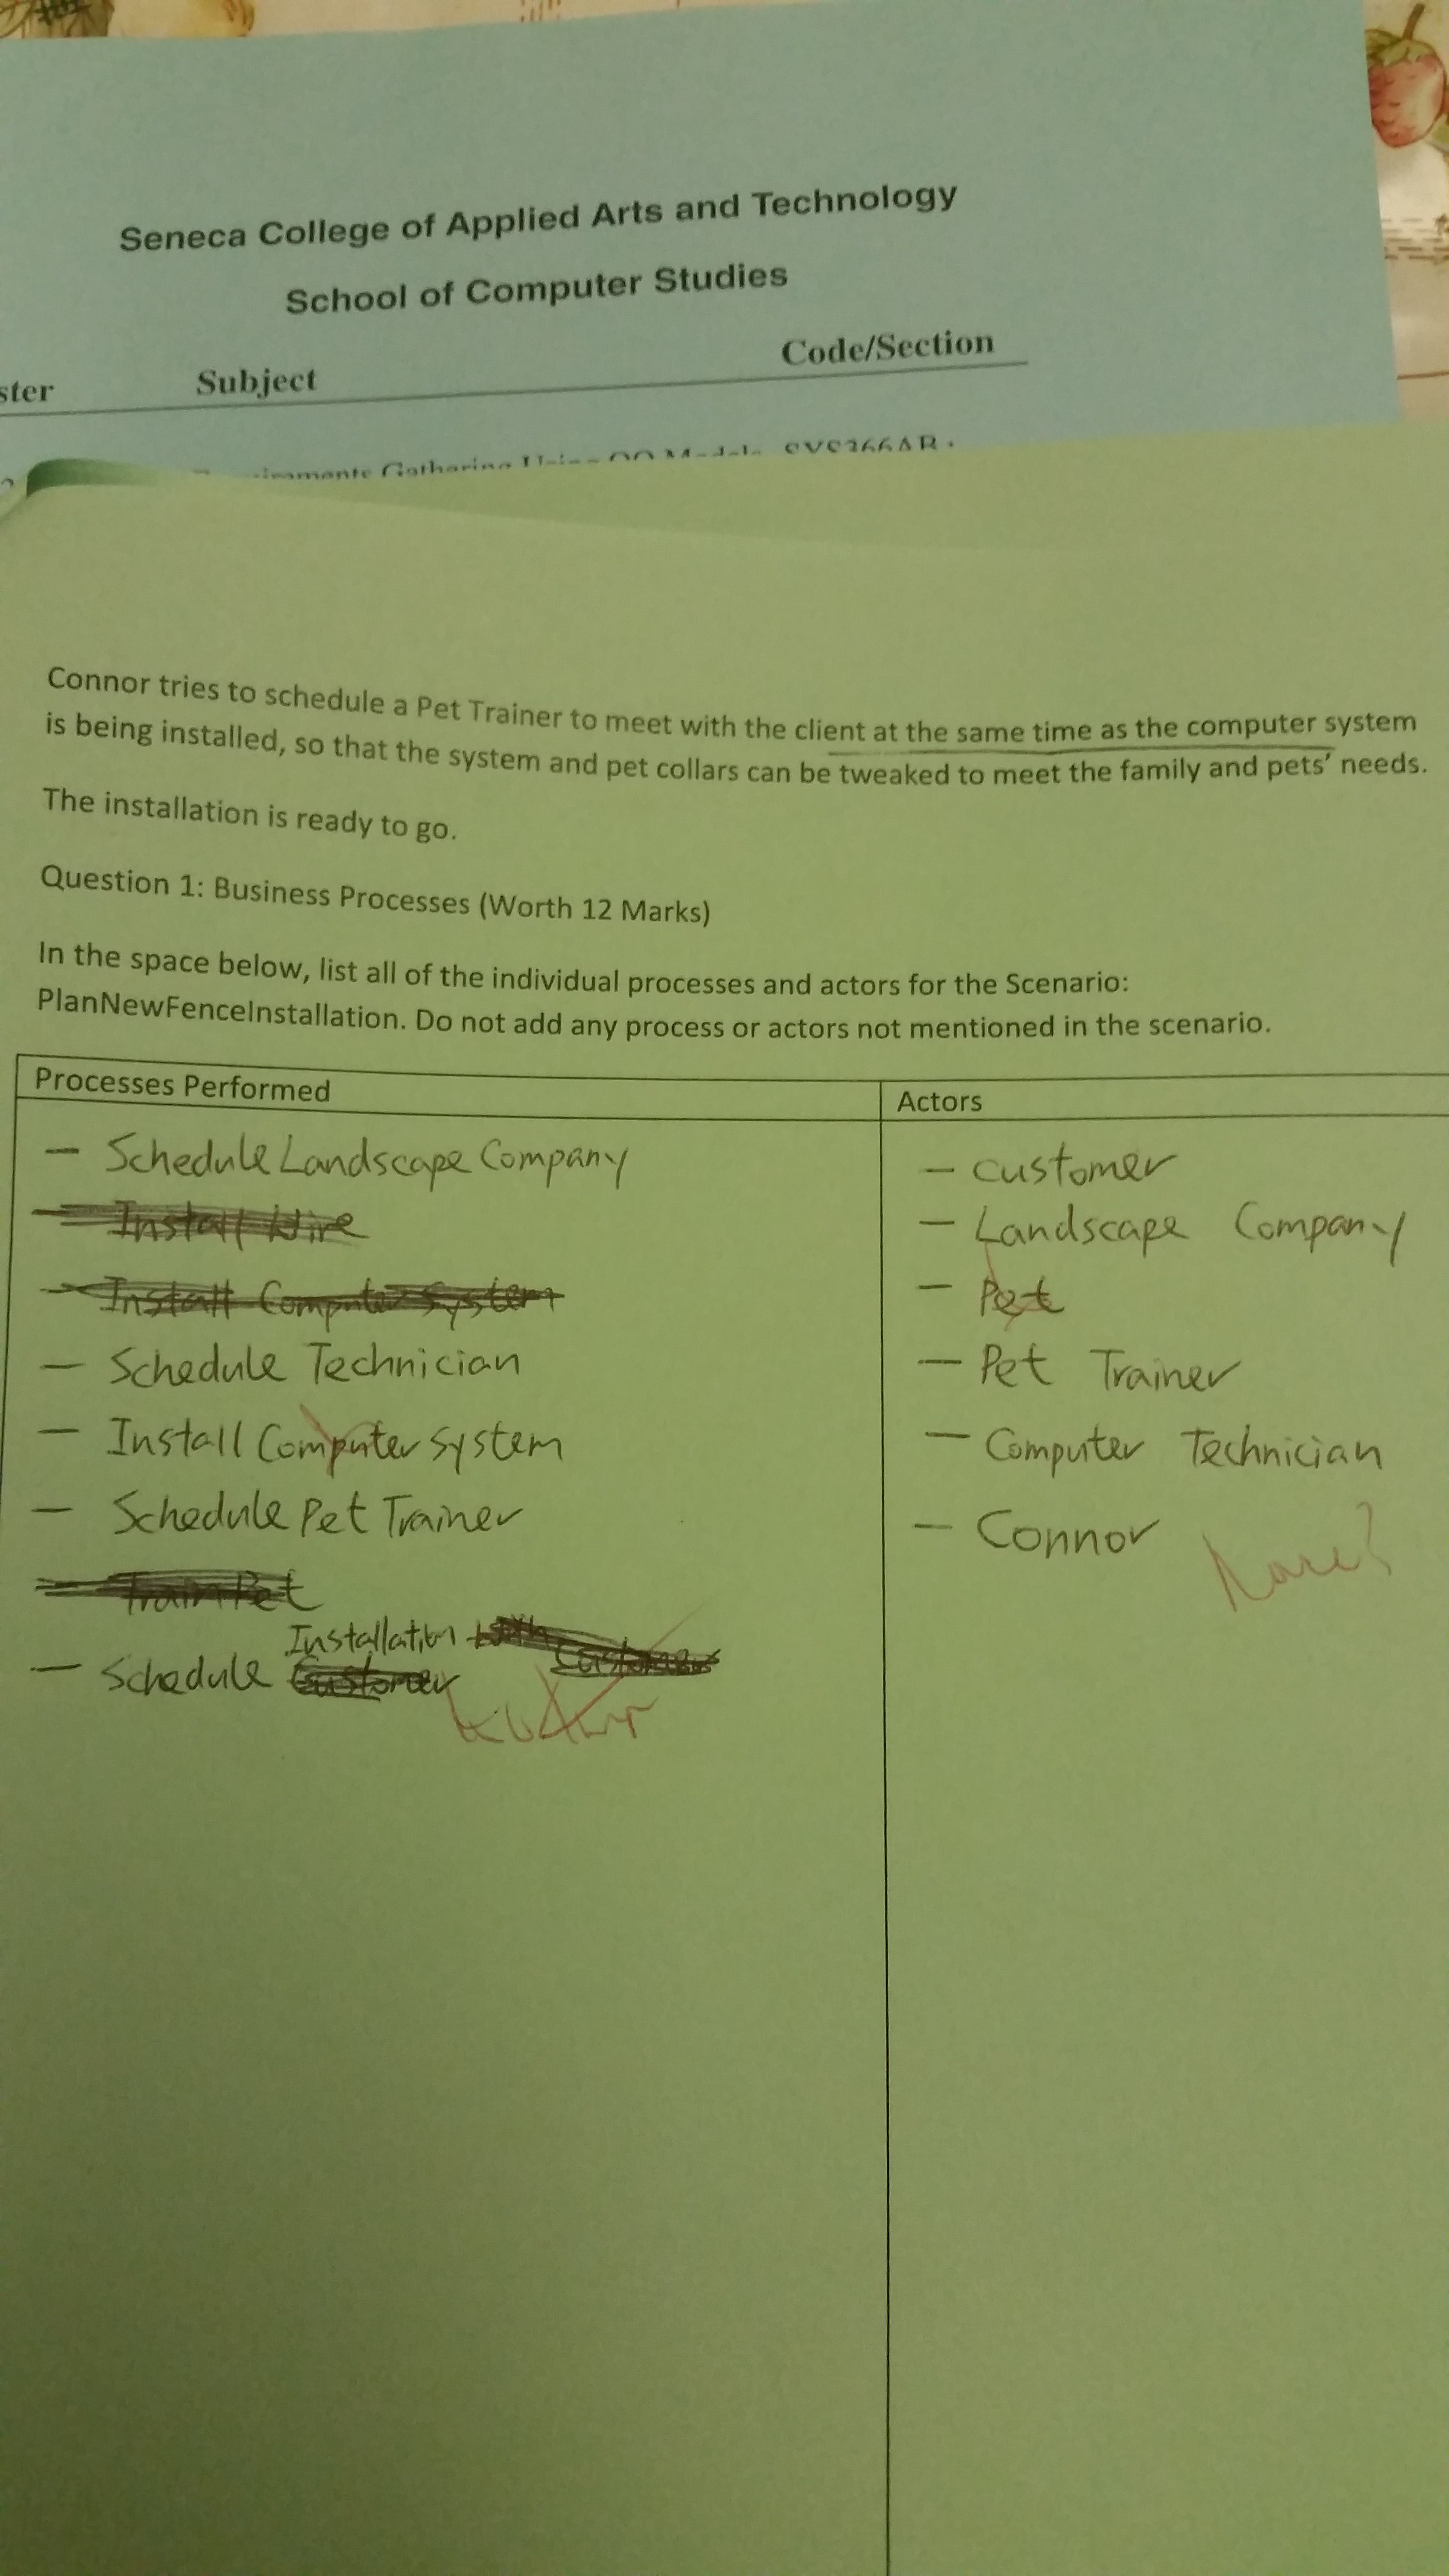 Seneca College of Applied Arts and Technology
School of Computer Studies
ster Subject Code/Section
Gathering Using OO Models SYS366AB
Connor tries to schedule a Pet Trainer to meet with the client at the same time as the computer system
is being installed, so that the system and pet collars can be tweaked to meet the family and pets' needs.
The installation is ready to go.
Question 1: Business Processes (Worth 12 Marks)
In the space below, list all of the individual processes and actors for the Scenario:
PlanNewFenceInstallation. Do not add any process or actors not mentioned in the scenario.
Processes Performed Actors
- Schedule Landscape Company - customer
- Install Wire - Landscape Company
- Install Computer System - Pet
- Schedule Technician - Pet Trainer
- Install Computer System - Computer Technician
- Schedule Pet Trainer - Connor
- Train Pet
Installation with Customer
- Schedule Customer